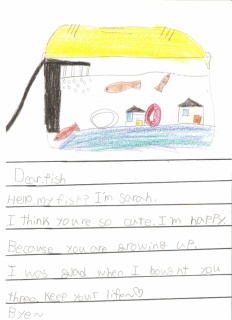 Dear. fish
Hello, my fish? I'm sarah.
I think you're so cute. I'm happy.
Because you are growing up.
I was glad when I bought you
three. Keep your life~♡
Bye~